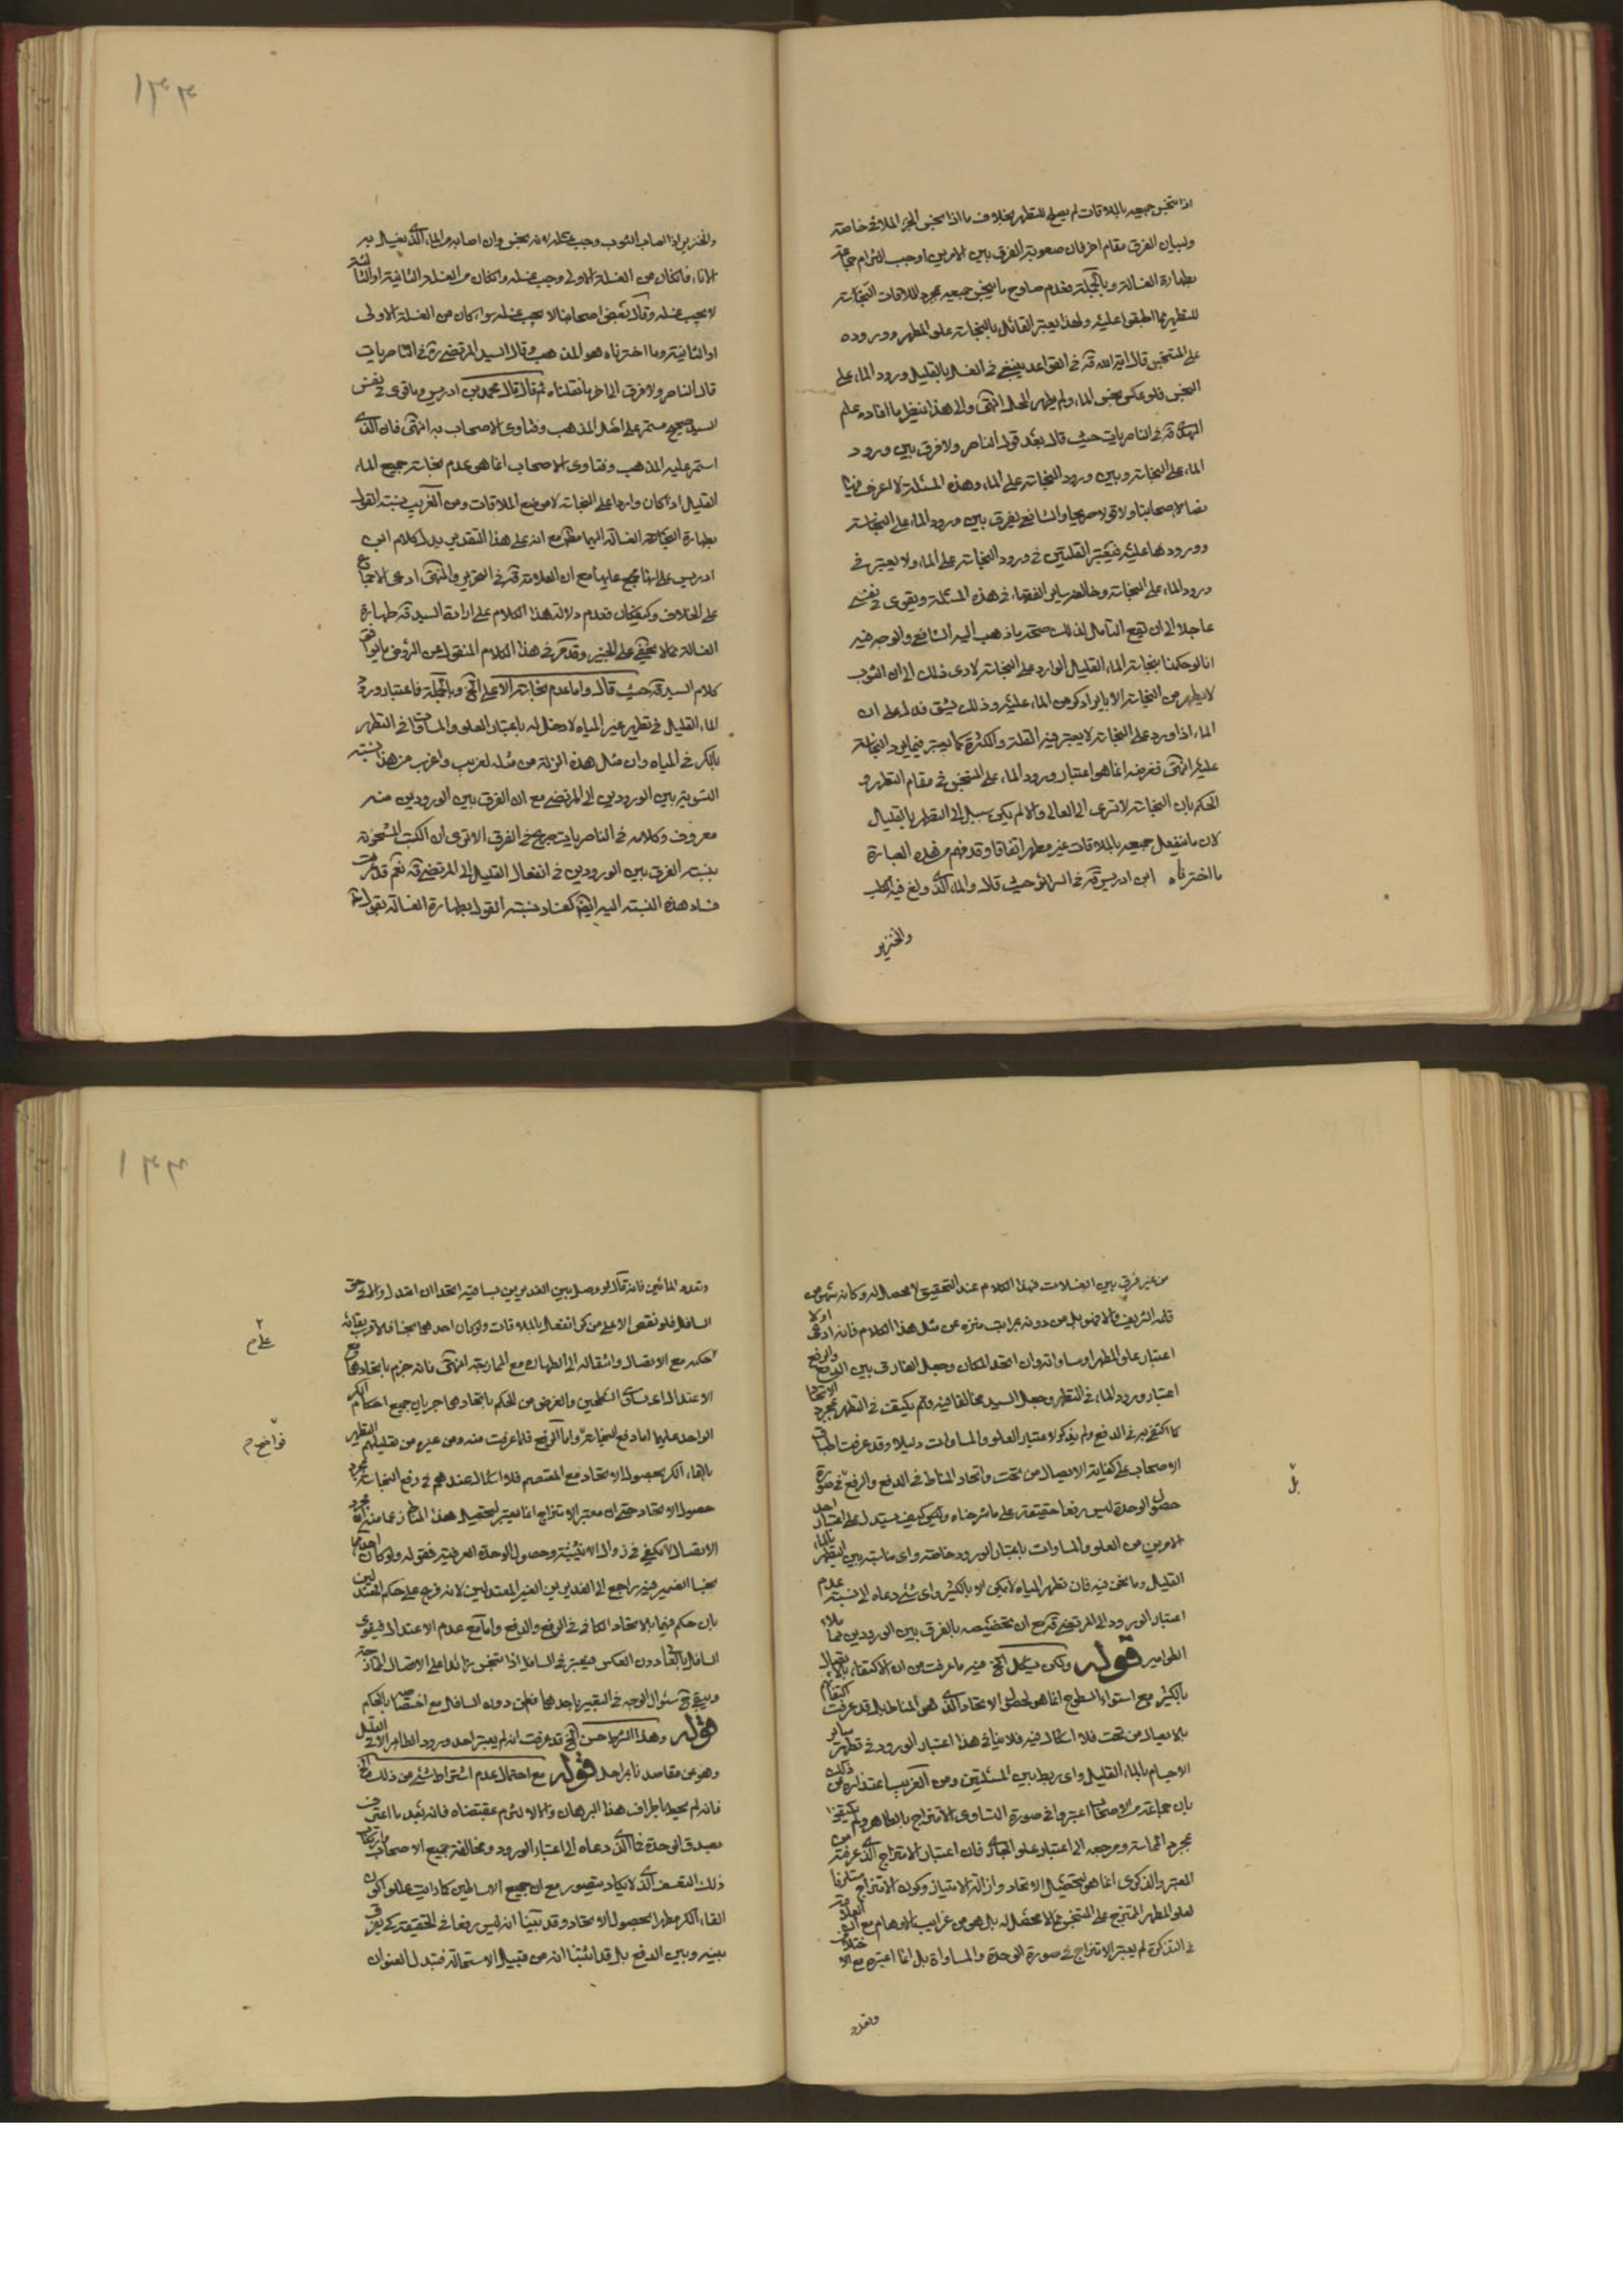 اذا تنجس جميعه بالملاقات لم يصلح للتطهر بخلاف ما اذا تنجس الجزء الملاقى خاصة
ولبيان الفرق مقام اخر فان صعوبة الفرق بين الامرين اوجب التزام جماعة
بطهارة الغسالة وبالجملة فعدم صلوح ما ينجس جميعه بمجرد الملاقات للنجاسة
للتطهر مما اطبقوا عليه ولهذا يعتبر القائل بالنجاسة علو المطهر ووروده
على المتنجس قال آية الله قه فى القواعد ينبغى فى الغسل بالقليل ورود الماء على
النجس فلو عكس نجس الماء ولم يطهر المحل انتهى والى هذا ينظر ما افاده علم
الهدى قه فى الناصريات حيث قال بعد قول الناصر ولا فرق بين ورود
الماء على النجاسة وبين ورود النجاسة على الماء وهذه المسئلة لا اعرف فيها
نصا لاصحابنا ولا قولا صريحا والشافعى يفرق بين ورود الماء على النجاسة
وورودها عليه فيعتبر القلتين فى ورود النجاسة على الماء ولا يعتبر فى
ورود الماء على النجاسة وخالفه ساير الفقهاء فى هذه المسئلة ويقوى فى نفسى
عاجلا الى ان يقع التأمل لذلك صحة ما ذهب اليه الشافعى والوجه فيه
انا لو حكمنا بنجاسة الماء القليل الوارد على النجاسة لادى ذلك الى ان الثوب
لا يطهر من النجاسة الا بايراد كر من الماء عليه وذلك يشق فدل على ان
الماء اذا ورد على النجاسة لا يعتبر فيه القلة والكثرة كما يعتبر فيما يرد النجاسة
عليه انتهى فغرضه انما هو اعتبار ورود الماء على المتنجس فى مقام التطهر و
الحكم بان النجاسة لا تسرى الى العالى والا لم يكن سبيل الى التطهر بالقليل
لان ما ينفعل جميعه بالملاقات غير مطهر اتفاقا وقد فهم من هذه العبارة
ما اخترناه ابن ادريس قه فى السرائر حيث قال والماء الذى ولغ فيه الكلب
والخنزير
والخنزير اذا اصاب الثوب وجب غسله لانه نجس وان اصابه من الماء الذى يغسل به
الاناء فان كان من الغسلة الاولى وجب غسله وان كان من الغسلة الثانية او الثالثة
لا يجب غسله وقال بعض اصحابنا لا يجب غسله سواء كان من الغسلة الاولى
او الثانية وما اخترناه هو المذهب وقال السيد المرتضى ره فى الناصريات
قال الناصر ولا فرق الى اخر ما نقلناه ثم قال قال محمد بن ادريس وما قوى فى نفس
السيد صحيح مستمر على اصل المذهب وفتاوى الاصحاب به انتهى فان الذى
استمر عليه المذهب وفتاوى الاصحاب انما هى عدم نجاسة جميع الماء
القليل اذا كان واردا على النجاسة لا موضع الملاقات ومن الغريب نسبة القول
بطهارة الغسالة اليهما مع انه على هذا التقدير يدل كلام ابن
ادريس على انها مجمع عليها مع ان العلامة قه فى التحرير والمنتهى ادعى الاجماع
على الخلاف وكيف كان فعدم دلالة هذا الكلام على ارادة السيد قه طهارة
الغسالة مما لا يخفى على الخبير وقد مر فى هذا الكلام المنقول عن الروض ما يوافق
كلام السيد قه حيث قال واما عدم نجاسة الاعلى الخ وبالجملة فاعتبار ورود
الماء القليل فى تطهير غير المياه لا دخل له باعتبار العلو والمساوات فى التطهر
بالكر فى المياه وان مثل هذه الزلة من مثله لغريب واغرب من هذا نسبة
التسوية بين الورودين الى المرتضى مع ان الفرق بين الورودين منه
معروف وكلامه فى الناصريات صريح فى الفرق الا ترى ان الكتب مشحونة
بنسبة الفرق بين الورودين فى انفعال القليل الى المرتضى قه نعم قد عرفت
فساد هذه النسبة اليه ايضا كفساد نسبة القول بطهارة الغسالة بقول
من غير فرق بين الغسلات فهذا الكلام عند التحقيق لا محصل له وكانه سهو من
قلمه الشريف والا فهو بل من دونه بمراتب منزه عن مثل هذا الكلام فانه ادعى اولا
اعتبار علو المطهر او مساواته وان اتحد المكان وجعل الفارق بين الدفع والرفع
اعتبار ورود الماء فى التطهر وجعل السيد مخالفا فيه ولم يكتف فى التطهر بمجرد الاتحاد
كما اكتفى به فى الدفع ولم يذكر لاعتبار العلو والمساوات دليلا وقد عرفت اطباق
الاصحاب على كفاية الاتصال من تحت واتحاد المناط فى الدفع والرفع فى صورة
حصول الوحدة ليس رفعا حقيقة على ما شرحناه ولكن كيف يستدل على اعتبار احد
الامرين من العلو والمساوات باعتبار الورود خاصة واى مناسبة بين التطهر بالماء
القليل وما نحن فيه فان تطهر المياه لا يكن الا بالكثير واى شئ دعاه الى نسبة عدم
اعتبار الورود الى المرتضى قه مع ان تخصيصه بالفرق بين الورودين مما ملاء
الطوامير قوله ولكن يشكل الخ فيه ما عرفت من ان الاكتفاء بالاتصال
بالكثير مع استواء السطوح انما هو لحصول الاتحاد الذى هو المناط بل قد عرفت اكتفائهم
بالاتصال من تحت فلا اشكال فيه فلا ينافى هذا اعتبار الورود فى تطهر ساير
الاجسام بالماء القليل واى ربط بين المسئلتين ومن الغريب اعتذاره من ذلك
بان جماعة من الاصحاب اعتبروا فى صورة التساوى الامتزاج بالطاهر ولم يكتفوا
بمجرد المماسة ومرجعه الى اعتبار علو الجارى فان اعتبار الامتزاج الذى عرفته من
المعتبر والذكرى انما هو لتحصيل الاتحاد وازالة الامتياز وكون الامتزاج مستلزما
لعلو المطهر الممتزج على المتنجس مما لا محصل له بل هو من غرايب الاوهام مع ان العلامة
فى التذكرة لم يعتبر الامتزاج فى صورة الوحدة والمساواة بل انما اعتبره مع الاختلاف
وتعدد
بل
وتعدد المائين فانه قال لو وصل بين الغديرين بساقية اتحدا ان اعتدل الماء والا فى حق
السافل فلو نقص الاعلى من كر انفعل بالملاقات ولو كان احدهما نجسا فالاقرب بقائه
على حكمه مع الاتصال وانتقاله الى الطهارة مع الممازجة انتهى فانه جزم باتحادهما مع
الاعتدال اعنى تساوى السطحين والغرض من الحكم باتحادهما جريان جميع احكام الكر
الواحد عليهما اما دفع النجاسة واما الرفع فلما عرفت منه ومن غيره من تعليلهم التطهير
بالقاء الكر بحصول الاتحاد مع المعتصم فلا اشكال عندهم فى رفع النجاسة بمجرد
حصول الاتحاد حتى ان معتبر الامتزاج انما يعتبر لتحصيل هذا المناط زعما منه ان مجرد
الاتصال لا يكفى فى زوال الاثنينية وحصول الوحدة العرفية فقوله ولو كان احدهما
نجسا الضمير فيه راجع الى الغديرين الغير المعتدلين لانه فرع على حكم المعتدلين
بان حكم فيهما بالاتحاد الكافى فى الرفع والدفع واما مع عدم الاعتدال فيقوى
السافل بالعالى دون العكس فيعتبر فى السافل اذا تنجس زائدا على الاتصال الممازجة
ويبقى ح سئوال الوجه فى التعبير باحدهما دون السافل مع اختصاصه بالحكم
قوله وهذا الشرط حسن الخ قد عرفت انه لم يعتبر احد ورود الطاهر الا فى القليل
وهو عن مقاصدنا بمراحل قوله مع احتمال عدم اشتراط شئ من ذلك الخ
فانه لم يحيط باطراف هذا البرهان والا لالتزم بمقتضاه فانه بعد ما اعترف
بصدق الوحدة فما الذى دعاه الى اعتبار الورود ومخالفة جميع الاصحاب وارتكاب
ذلك التعسف الذى لا يكاد يتصور مع ان جميع الاساطين كما رايت عللوا كون
القاء الكر مطهرا بحصول الاتحاد وقد تبينا انه ليس رفعا فى الحقيقة كى يفرق
بينه وبين الدفع بل قد اثبتنا انه من قبيل الاستحالة فتبدل العنوان